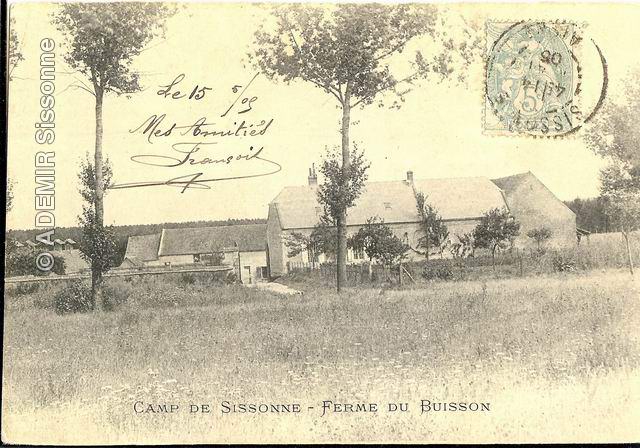 Le 15 5/05
Mes Amitiés
François
SISSONNE
AISNE
5
© ADEMIR Sissonne
CAMP DE SISSONNE - FERME DU BUISSON